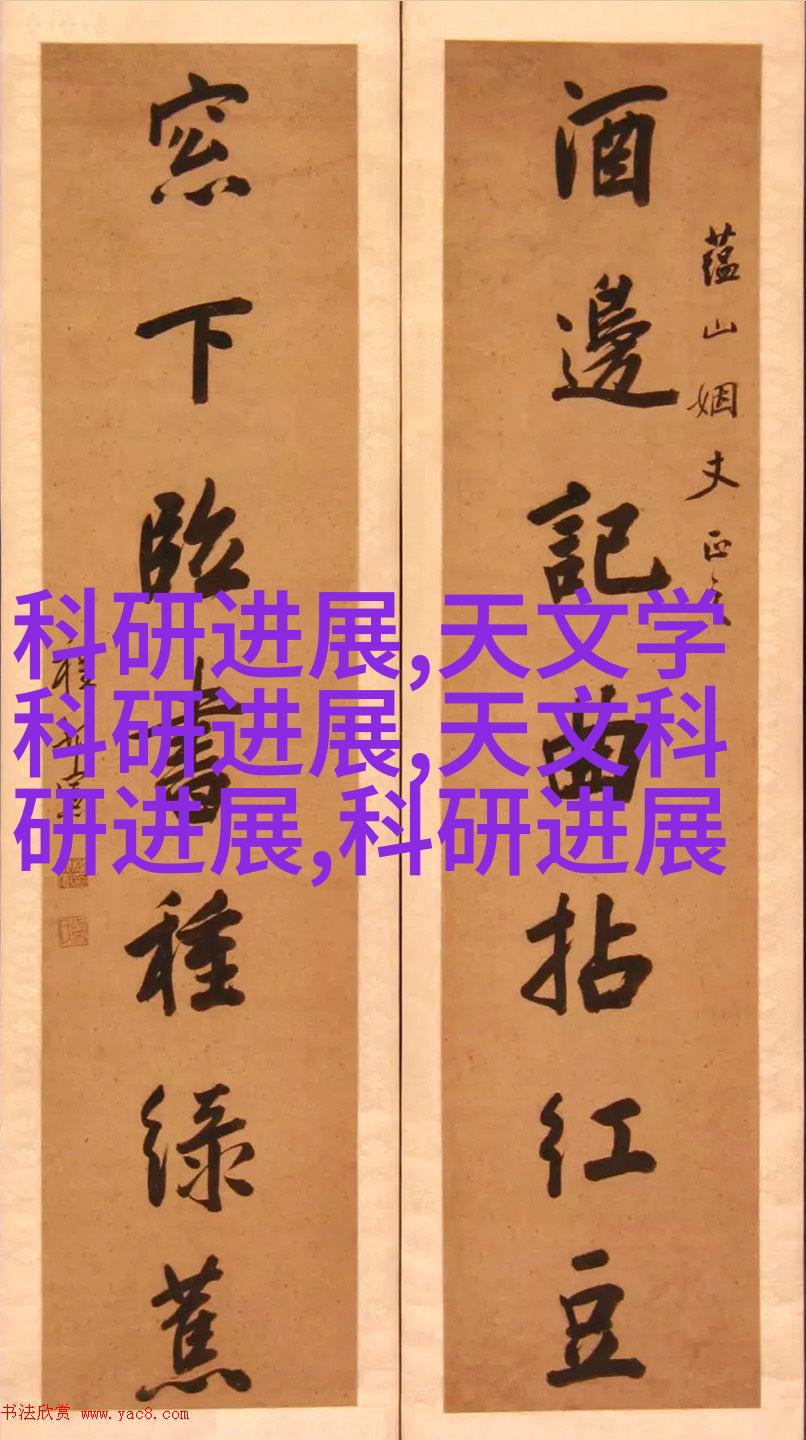 蘊山姻丈正
酒邊記曲拈紅豆
窓下臨書種綠蕉
科研进展,天文学
科研进展,天文科
研进展,科研进展
书法欣赏 www.yac8.com